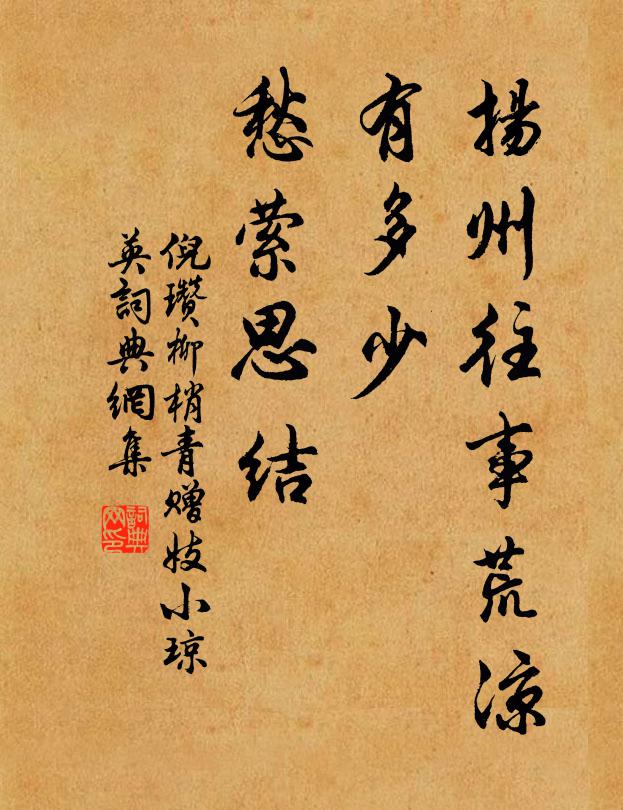 揚州往事荒涼
有多少
愁萦思结
倪瓚柳梢青贈妓小琼
英詞典網集
詞典
网印